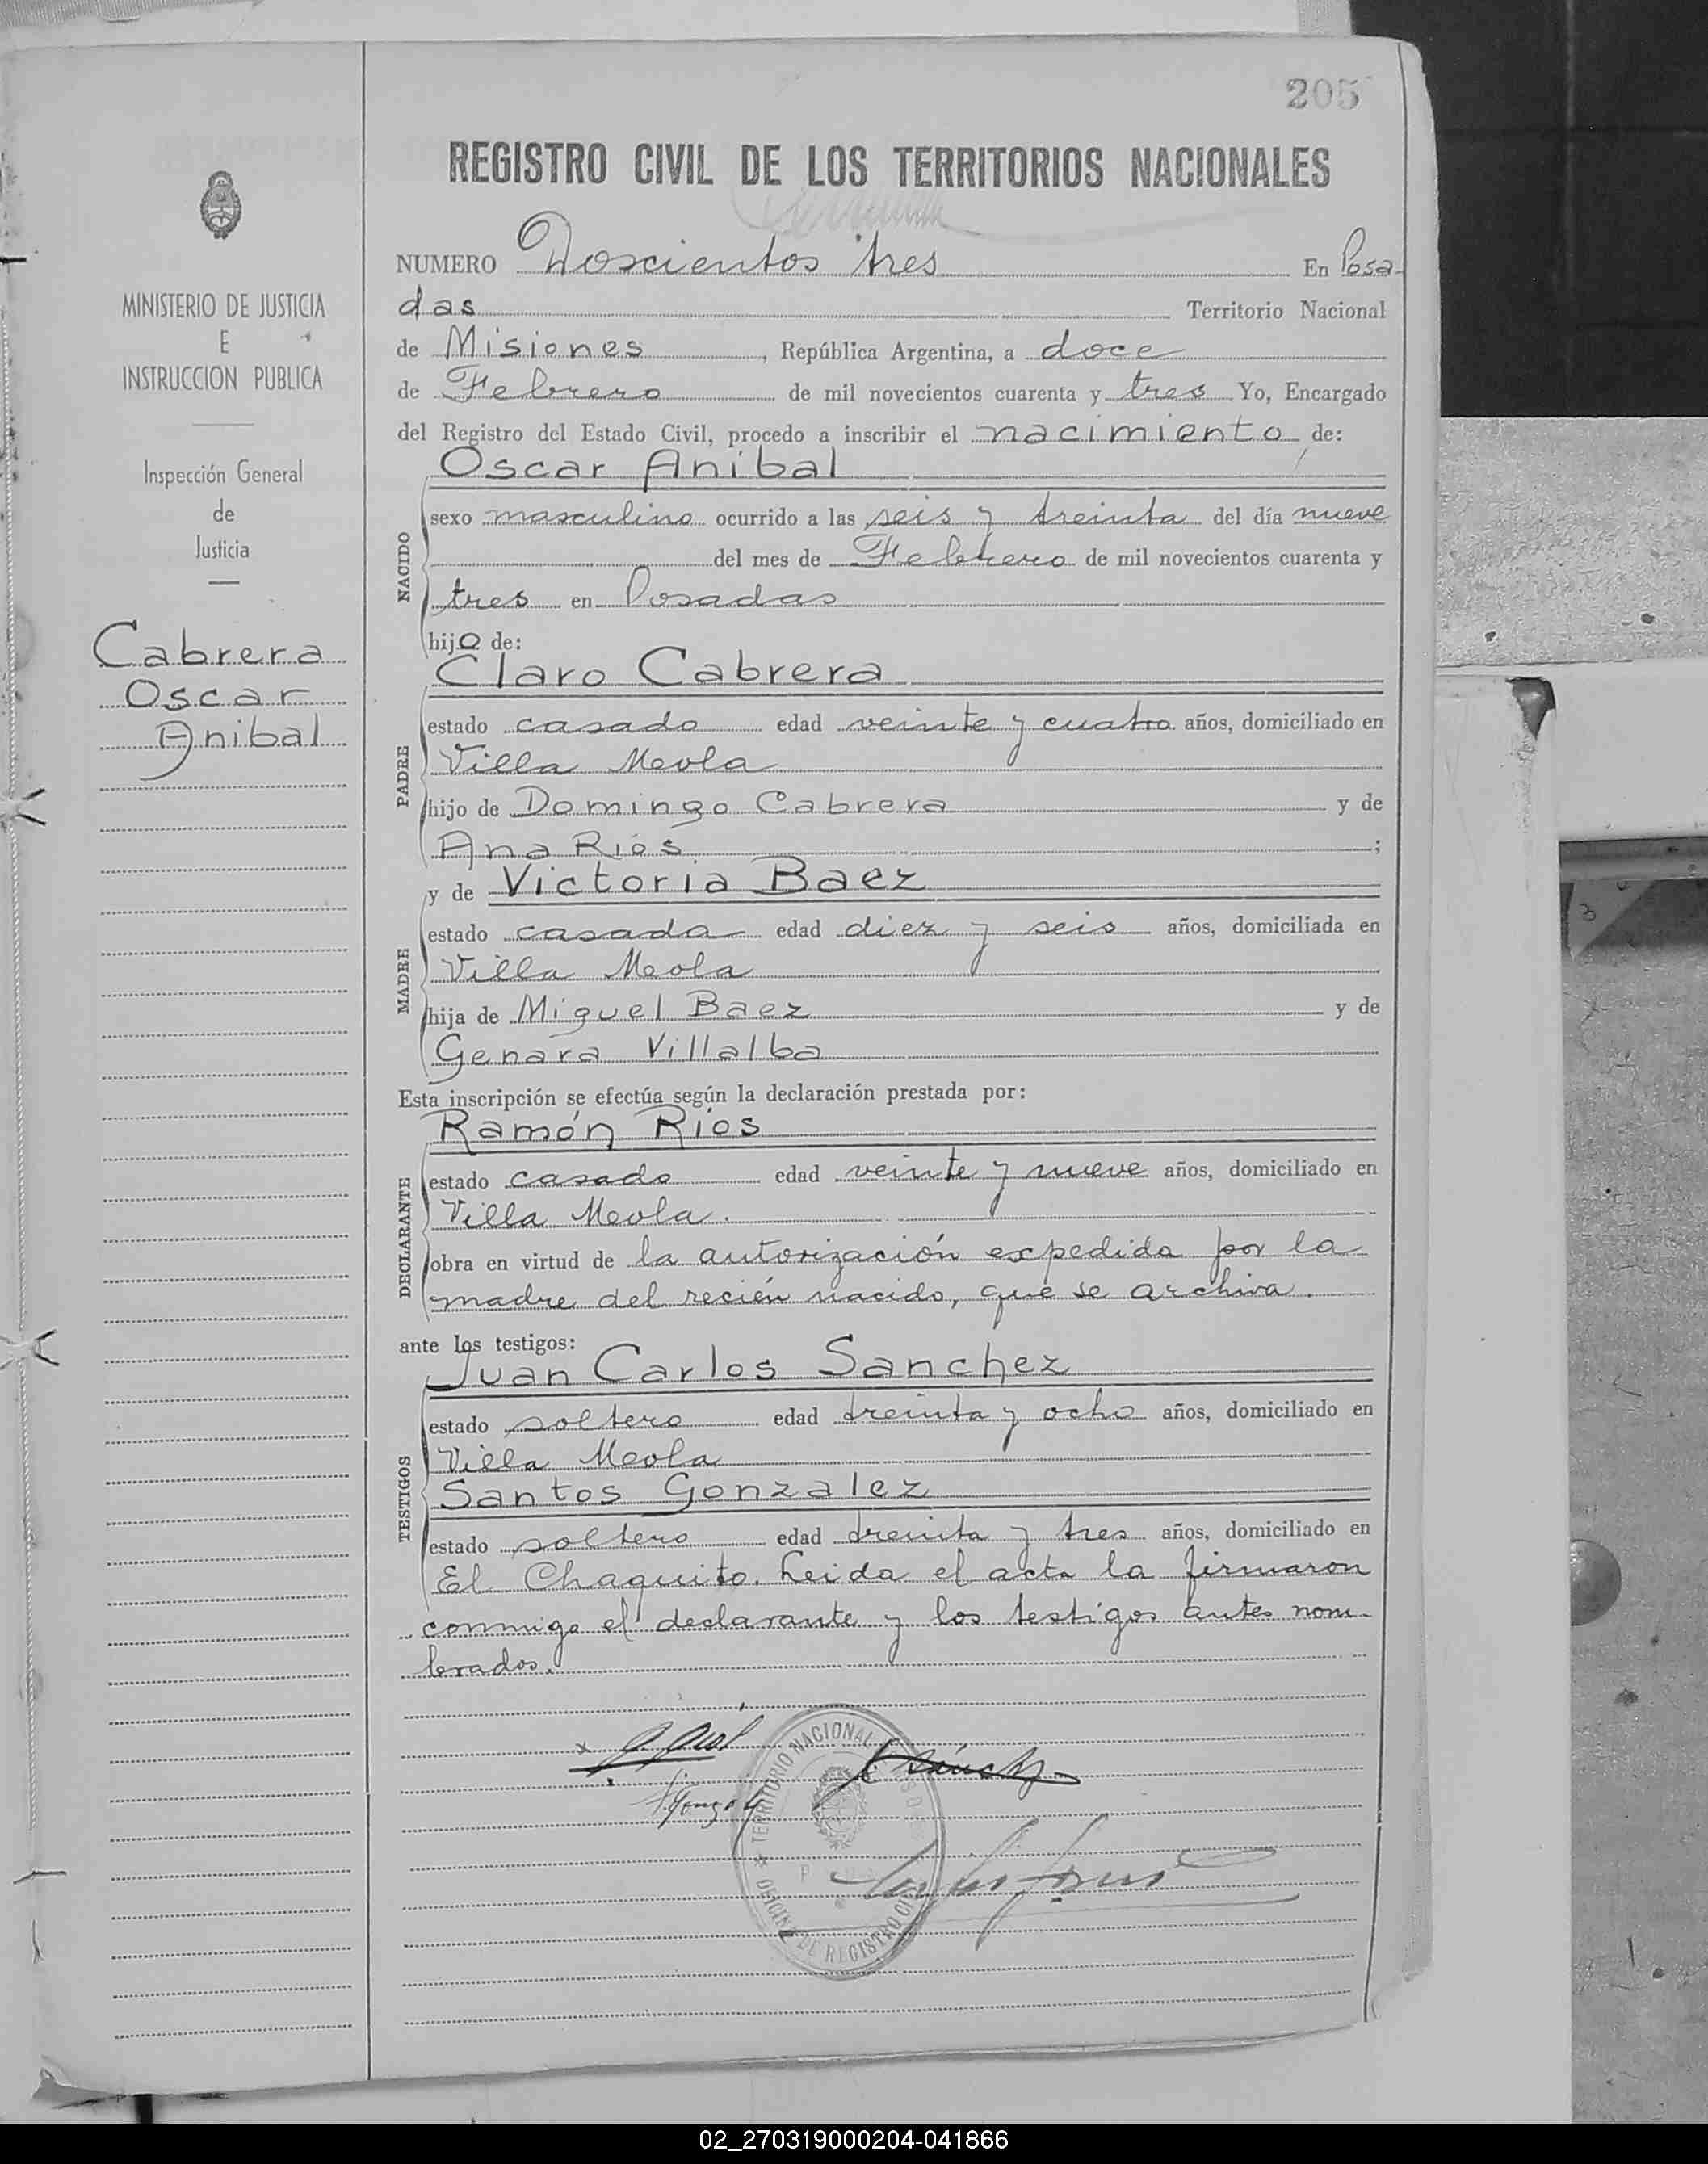 205
REGISTRO CIVIL DE LOS TERRITORIOS NACIONALES
NUMERO Doscientos tres En Posa-
das Territorio Nacional
de Misiones, República Argentina, a doce
de Febrero de mil novecientos cuarenta y tres Yo, Encargado
del Registro del Estado Civil, procedo a inscribir el nacimiento de:
Oscar Anibal
NACIDO
sexo masculino ocurrido a las seis y treinta del día nueve
del mes de Febrero de mil novecientos cuarenta y
tres en Posadas
hijo de:
Claro Cabrera
PADRE
estado casado edad veinte y cuatro años, domiciliado en
Villa Meola
hijo de Domingo Cabrera y de
Ana Rios;
y de Victoria Baez
MADRE
estado casada edad diez y seis años, domiciliada en
Villa Meola
hija de Miguel Baez y de
Genara Villalba
Esta inscripción se efectúa según la declaración prestada por:
Ramón Rios
DECLARANTE
estado casado edad veinte y nueve años, domiciliado en
Villa Meola.
obra en virtud de la autorización expedida por la
madre del recién nacido, que se archiva.
ante los testigos:
Juan Carlos Sanchez
TESTIGOS
estado soltero edad treinta y ocho años, domiciliado en
Villa Meola
Santos Gonzalez
estado soltero edad treinta y tres años, domiciliado en
El Chaquito. Leida el acta la firmaron
conmigo el declarante y los testigos antes nom-
brados.
TERRITORIO NACIONAL
OFICINA DE REGISTRO
MINISTERIO DE JUSTICIA
E
INSTRUCCION PUBLICA
Inspección General
de
Justicia
Cabrera
Oscar
Anibal
3
02_270319000204-041866